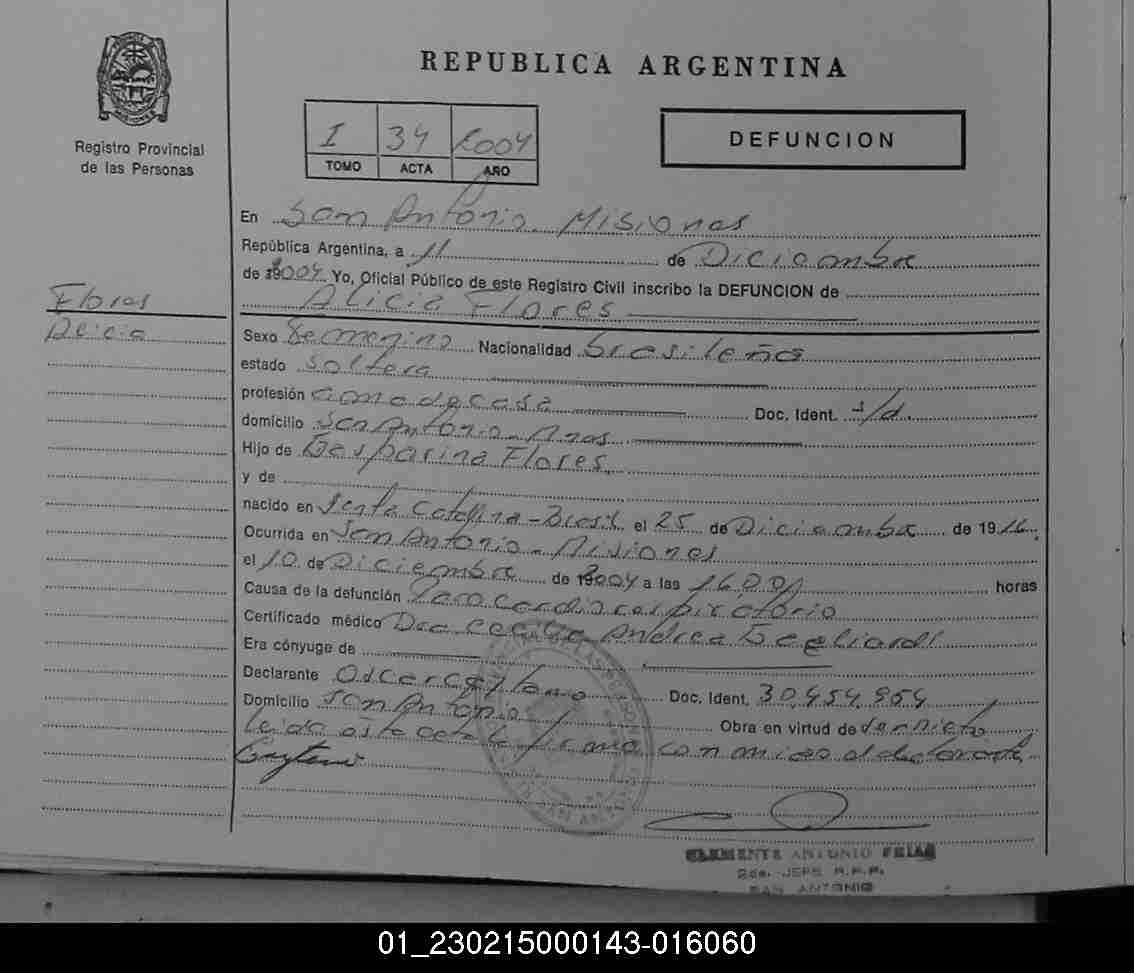 REPUBLICA ARGENTINA
Registro Provincial
de las Personas
I 34 2004
TOMO ACTA AÑO
DEFUNCION
En San Antonio Misiones
República Argentina, a 11 de Diciembre
de 2004 Yo, Oficial Público de este Registro Civil inscribo la DEFUNCION de
Alicia Flores
Flores
Alicia
Sexo Femenino Nacionalidad brasileña
estado Soltera
profesión ama de casa Doc. Ident. s/d.
domicilio San Antonio - Mnes
Hijo de Gasparina Flores
y de
nacido en Santa Catalina - Brasil el 25 de Diciembre de 1916
Ocurrida en San Antonio - Misiones
el 10 de Diciembre de 2004 a las 16:00 horas
Causa de la defunción Paro cardiorespiratorio
Certificado médico Dra Cecilia Andrea
Era cónyuge de
Declarante Oscar Doc. Ident. 30.454.864
Domicilio San Antonio Obra en virtud de ser nieto
leida esta acta la firma conmigo el declarante
CLEMENTE ANTONIO FRIAS
2do. JEFE R.P.P.
SAN ANTONIO
01_230215000143-016060